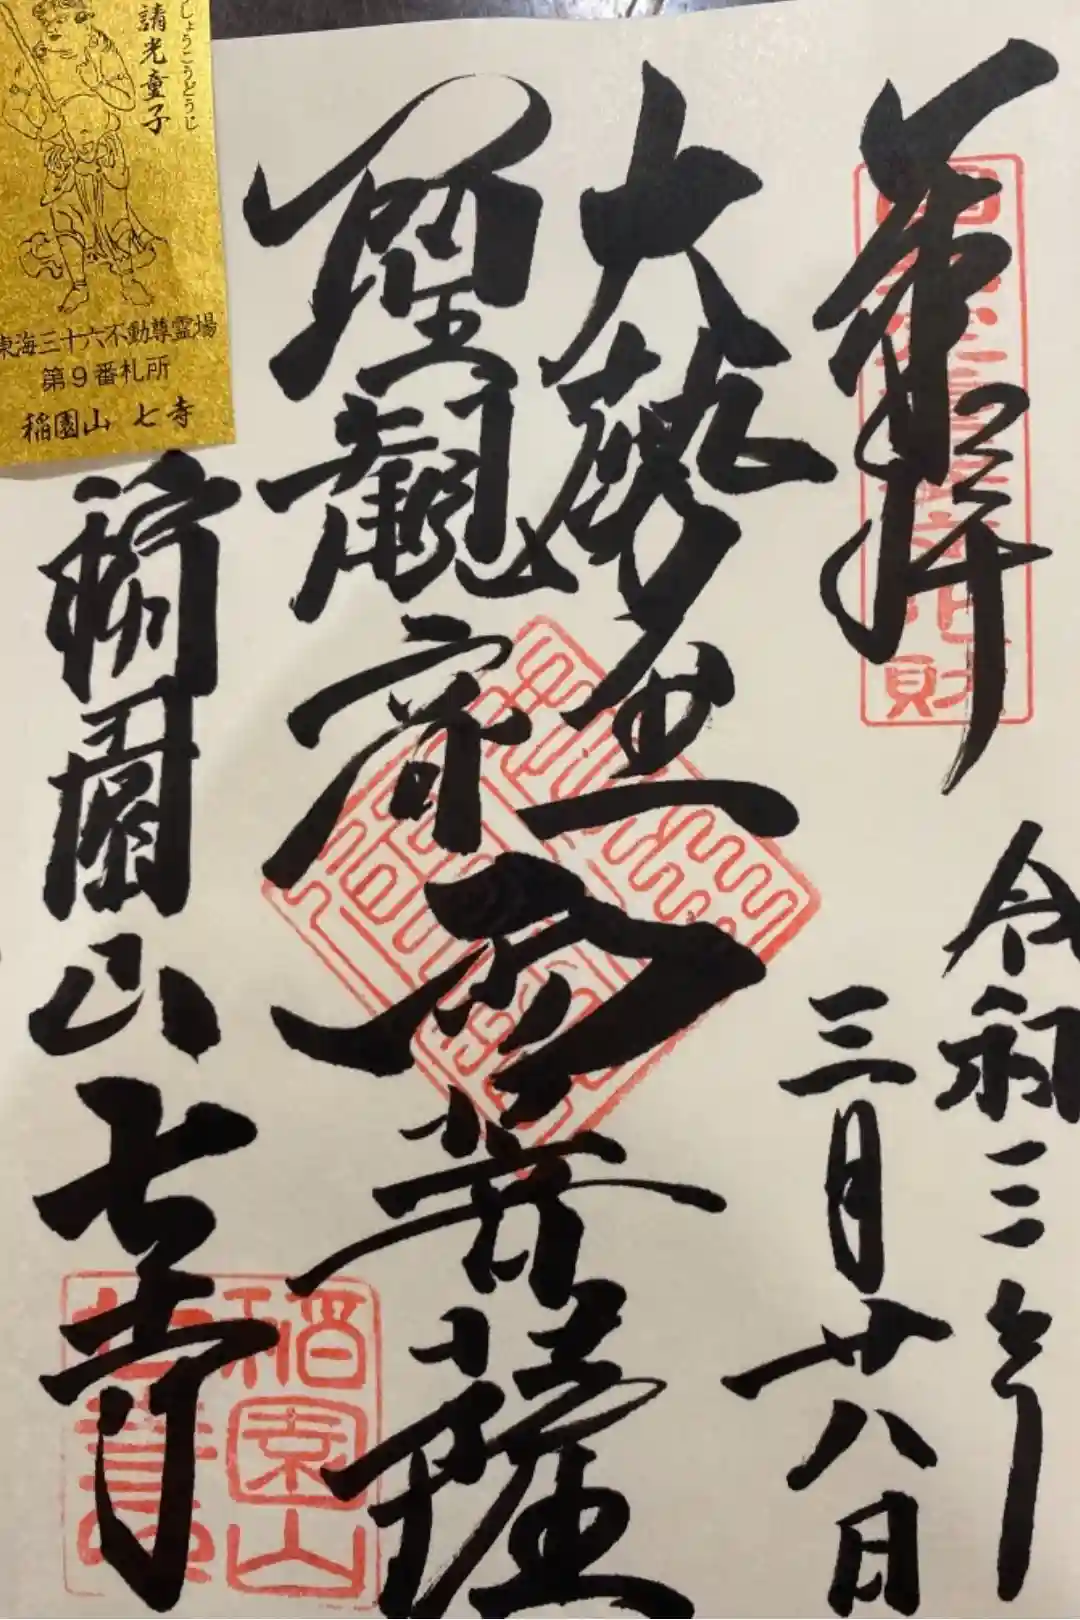 奉拝
令和三年
三月廿八日
大勢至
聖観音
両菩薩
稲園山
七寺
稲園山
しょうこうどうじ
請光童子
東海三十六不動尊霊場
第9番札所
稲園山 七寺